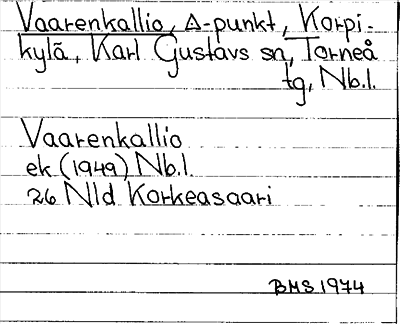 Vaarenkallio, Δ-punkt, Korpi-
kylä, Karl Gustavs sn, Torneå
tg, Nb.l.
Vaarenkallio
ek (1949) Nb.l.
26 Nld Korkeasaari
BMS 1974